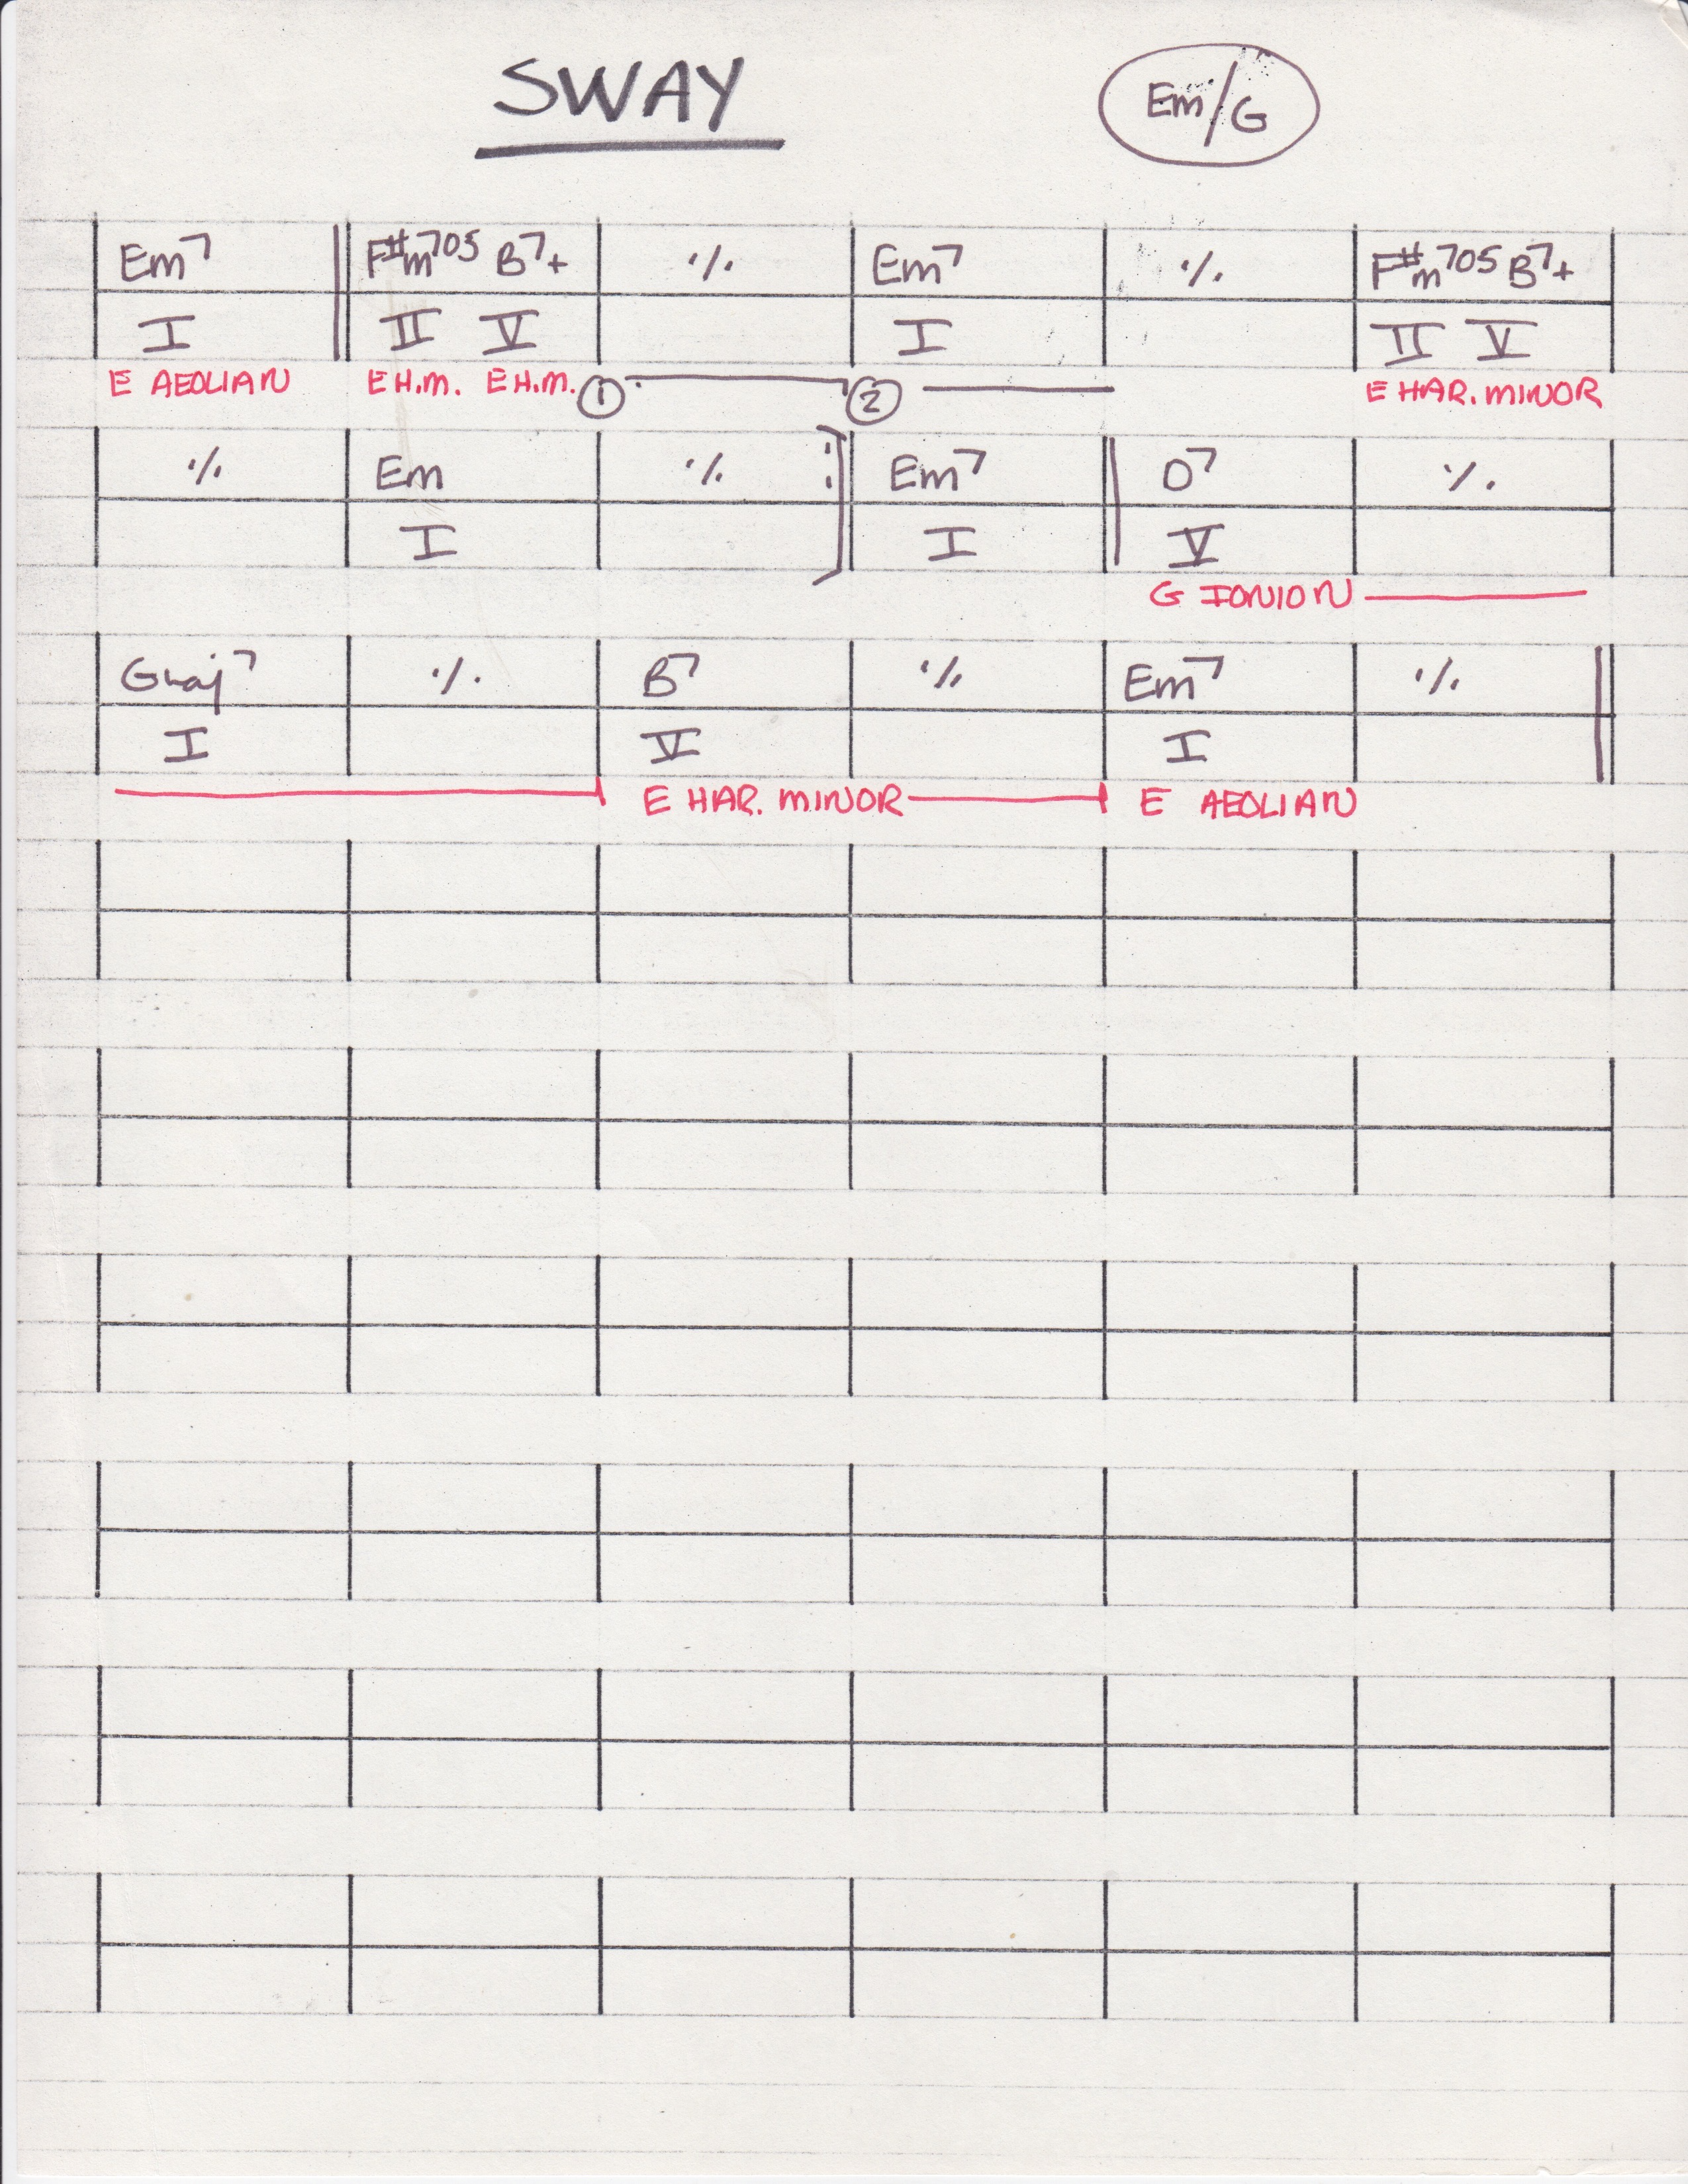 SWAY Em/G
Em7 F#m7b5 B7+ ٪ Em7 ٪ F#m7b5 B7+
I II V I II V
E AEOLIAN E H.M. E H.M. 1 2 E HAR. MINOR
٪ Em ٪ : Em7 D7 ٪
I I V
G IONION
Gmaj7 ٪ B7 ٪ Em7 ٪
I V I
E HAR. MINOR E AEOLIAN